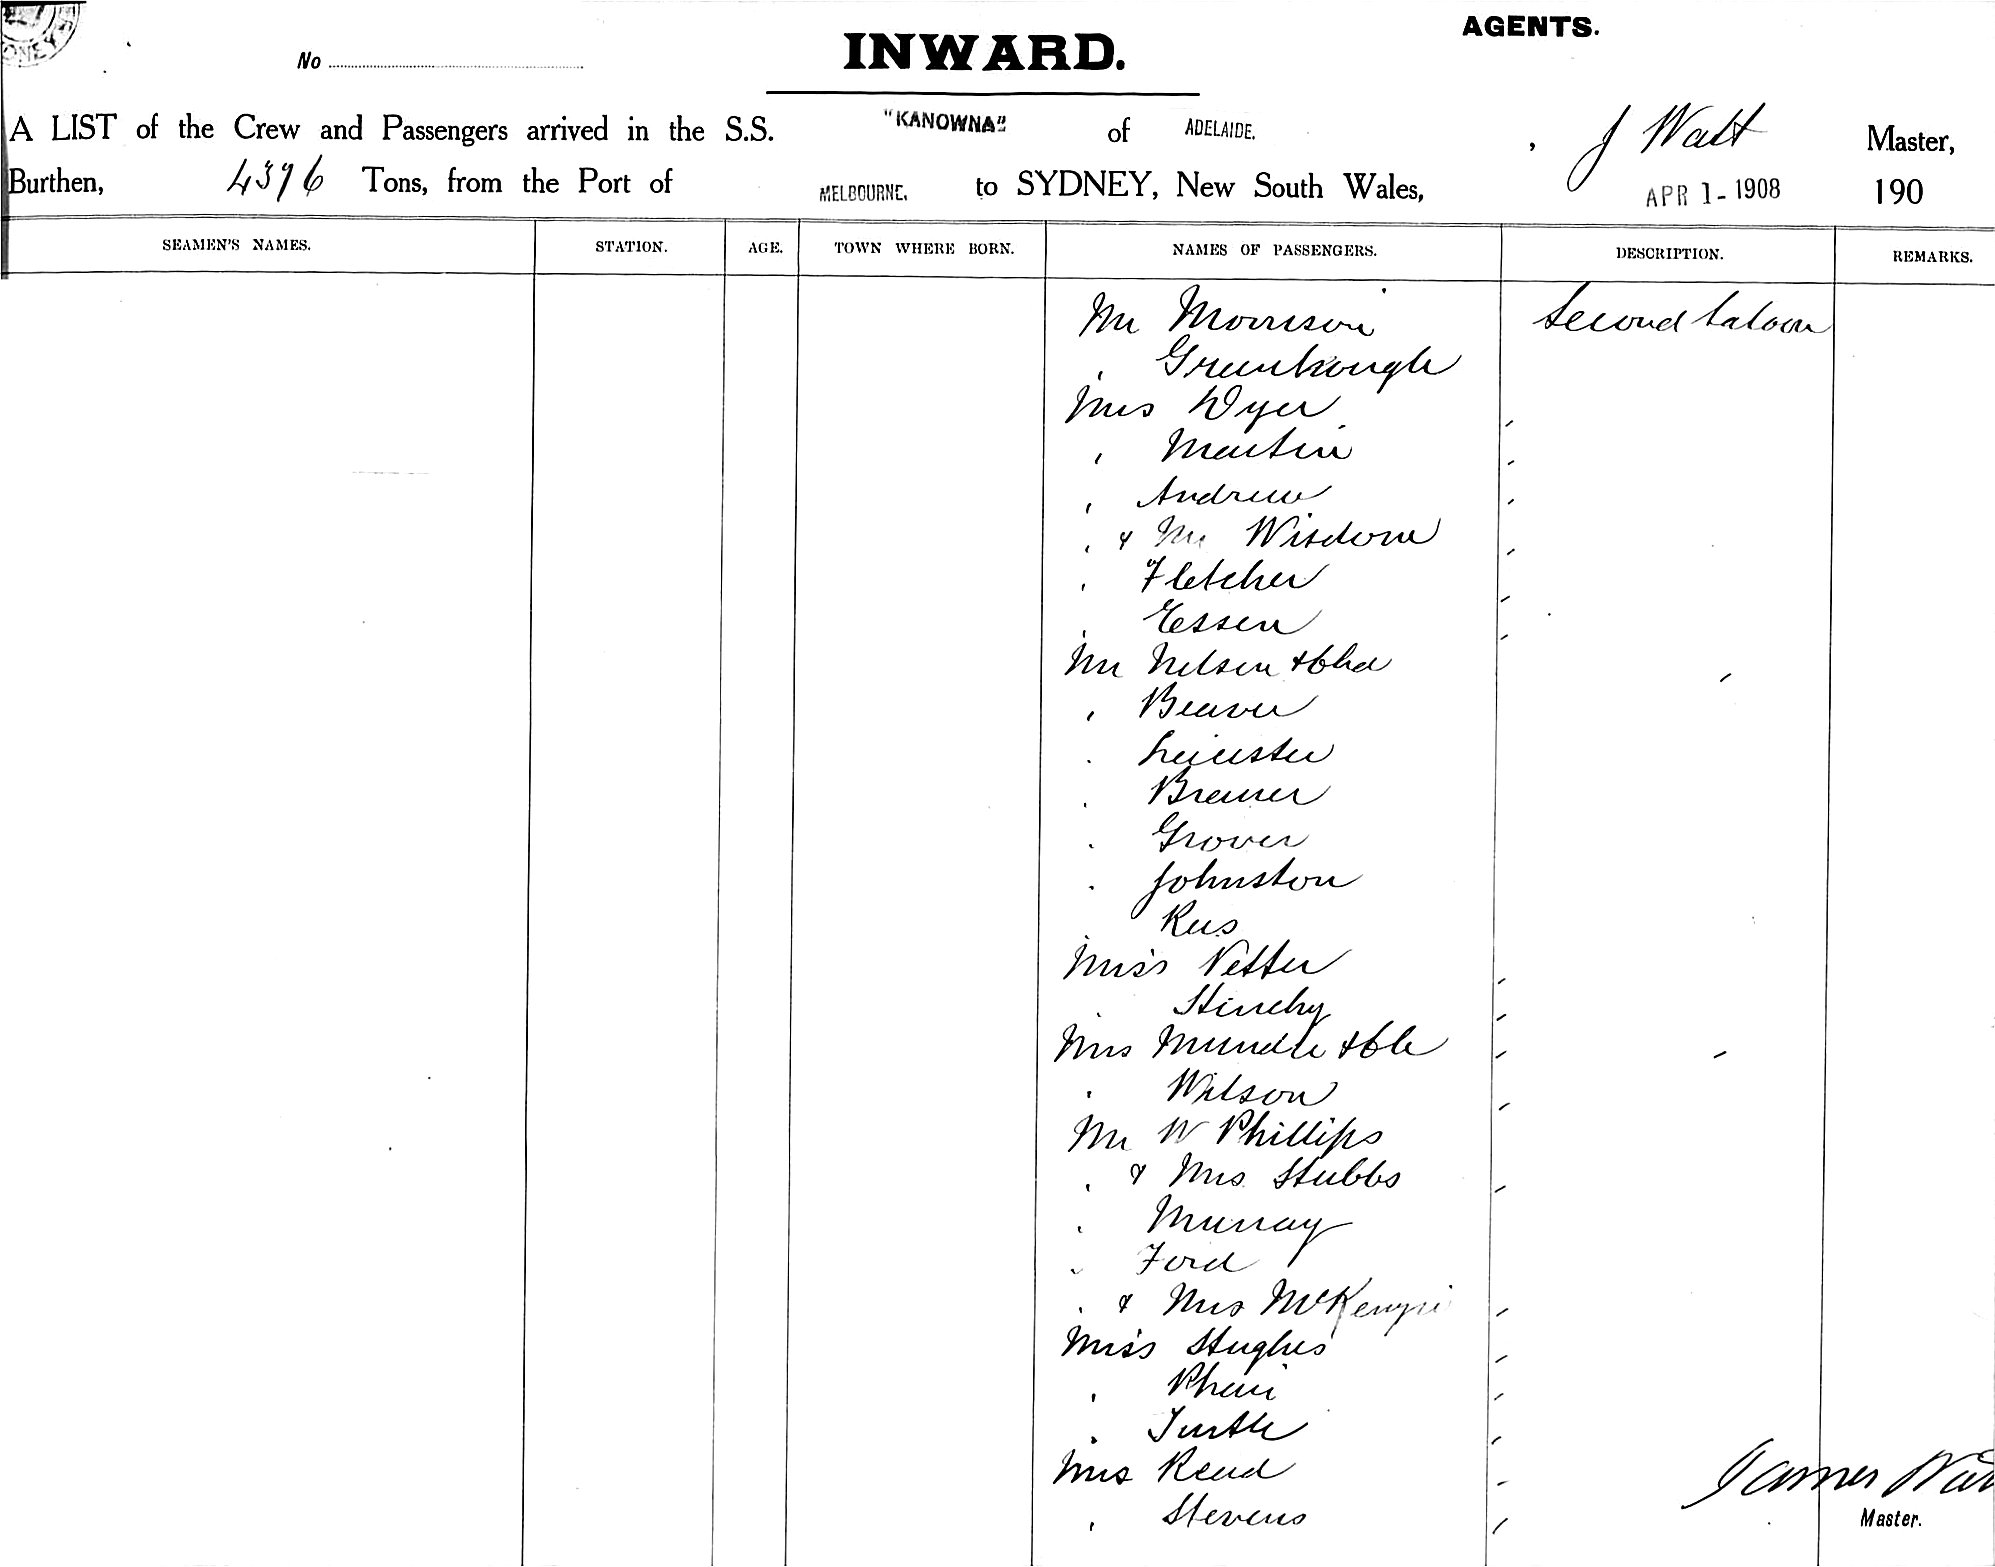 AGENTS.
No
INWARD.
A LIST of the Crew and Passengers arrived in the S.S. "KANOWNA" of ADELAIDE. , J Watt Master,
Burthen, 4396 Tons, from the Port of MELBOURNE. to SYDNEY, New South Wales, APR 1 - 1908 190
SEAMEN'S NAMES. STATION. AGE. TOWN WHERE BORN. NAMES OF PASSENGERS. DESCRIPTION. REMARKS.
Mr Morrison Second Saloon
, Greenhough
Mrs Dyer ,
, Martin ,
, Andrew ,
, & Mr Wisdom ,
, Fletcher ,
, Essen ,
Mr Nelsen & Chd ,
, Beaver
. Leicester
. Bremer
. Grover
. Johnston
. Rees
Miss Vetter ,
. ,
Mrs Mundie & Ch , ,
. Wilson ,
Mr W Phillips
, & Mrs Stubbs ,
. Murray
. Ford
. & Mrs McKenzie ,
Miss Hughes ,
, Phair ,
. Turtle ,
Mrs Read ,
, Stevens ,
James Wat
Master.